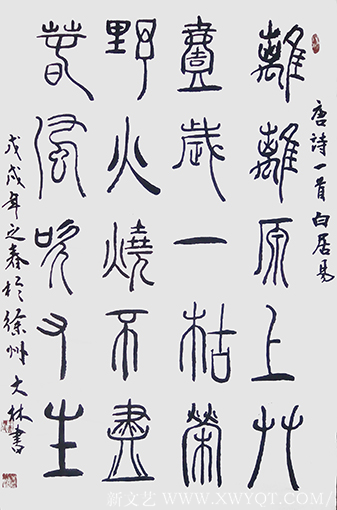 唐詩一首白居易
離離原上艸
壹歲一枯榮
野火燒不盡
春風吹又生
戊戌年之春於徐州大林書
新文艺 WWW.XWYQT.COM